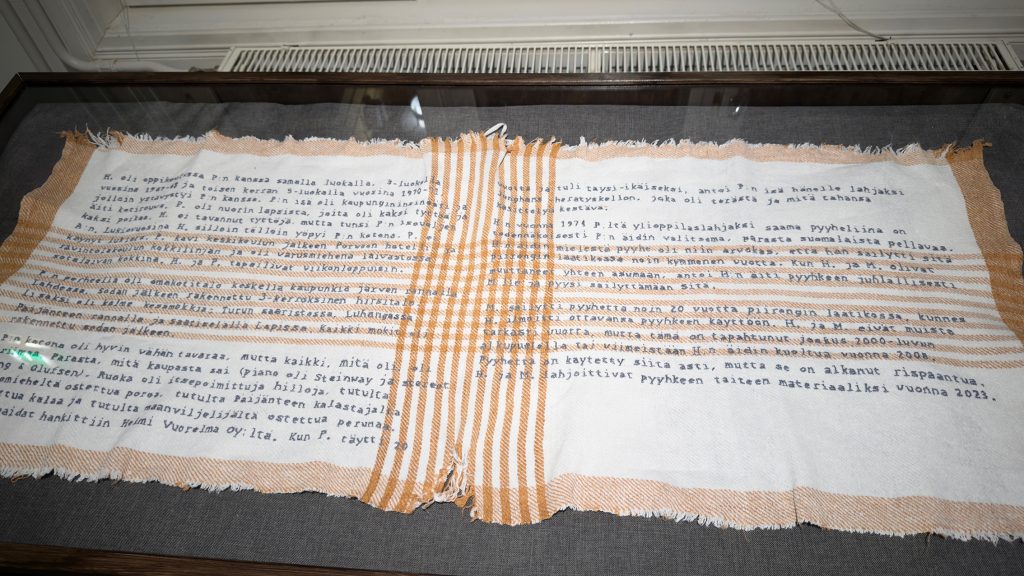 H. oli oppikoulussa P:n kanssa samalla luokalla, 3-luokalla
vuosina 1967-68 ja toisen kerran 5-luokalla vuosina 1970-71,
jolloin ystävystyi P:n kanssa. P:n isä oli kaupungininsinööri ja
äiti kotirouva. P. oli nuorin lapsista, joita oli kaksi tyttöä ja
kaksi poikaa. H. ei tavannut tyttöjä, mutta tunsi P:n isoveljen
A:n. Lukiovuosina H. silloin tällöin yöpyi P:n kotona. P.
kesäkuun jälkeen Porvoon
ja oli varusmiehenä laivastossa
sotalaivan kokkina. H. ja P. tapailivat viikonloppuisin.
P:n perhe oli omakotitalo keskellä kaupunkia järven rannalla
Lahdessa, sodan jälkeen rakennettu 3-kerroksinen hirsitalo.
Lisäksi oli kolme kesämökkiä: Turun saaristossa, Luhangassa
Päijänteen rannalla ja Saariselällä Lapissa. Kaikki mökit oli
rakennettu sodan jälkeen.
P:n kotona oli hyvin vähän tavaraa, mutta kaikki, mitä oli, oli
parasta, mitä kaupasta sai (piano oli Steinway ja stereot
Bang & Olufsen). Ruoka oli itsepoimittuja hilloja, tutulta
poromieheltä ostettua poroa, tutulta Päijänteen kalastajalta
ostettua kalaa ja tutulta maanviljelijältä ostettua perunaa.
hankittiin Helmi Vuorelma Oy:ltä. Kun P. täytti 20
vuotta ja tuli täysi-ikäiseksi, antoi P:n isä hänelle lahjaksi
Junghans herätyskellon, joka oli terästä ja mitä tahansa
käsittelyä kestävä.
H:n vuonna 1974 P:ltä ylioppilaslahjaksi saama pyyheliina on
todennäköisesti P:n äidin valitsema, parasta suomalaista pellavaa.
H:n mielestä pyyhe oli niin arvokas, että hän säilytti sitä
piirongin laatikossa noin kymmenen vuotta. Kun H. ja M. olivat
muuttaneet yhteen asumaan, antoi H:n äiti pyyhkeen juhlallisesti
M:lle ja pyysi säilyttämään sitä.
M. säilytti pyyhettä noin 20 vuotta piirongin laatikossa, kunnes
H. ilmoitti ottavansa pyyhkeen käyttöön. H. ja M. eivät muista
tarkasti vuotta, mutta tämä on tapahtunut joskus 2000-luvun
alkupuolella tai viimeistään H:n äidin kuoltua vuonna 2008.
Pyyhettä on käytetty siitä asti, mutta se on alkanut rispaantua.
H. ja M. lahjoittivat pyyhkeen taiteen materiaaliksi vuonna 2023.